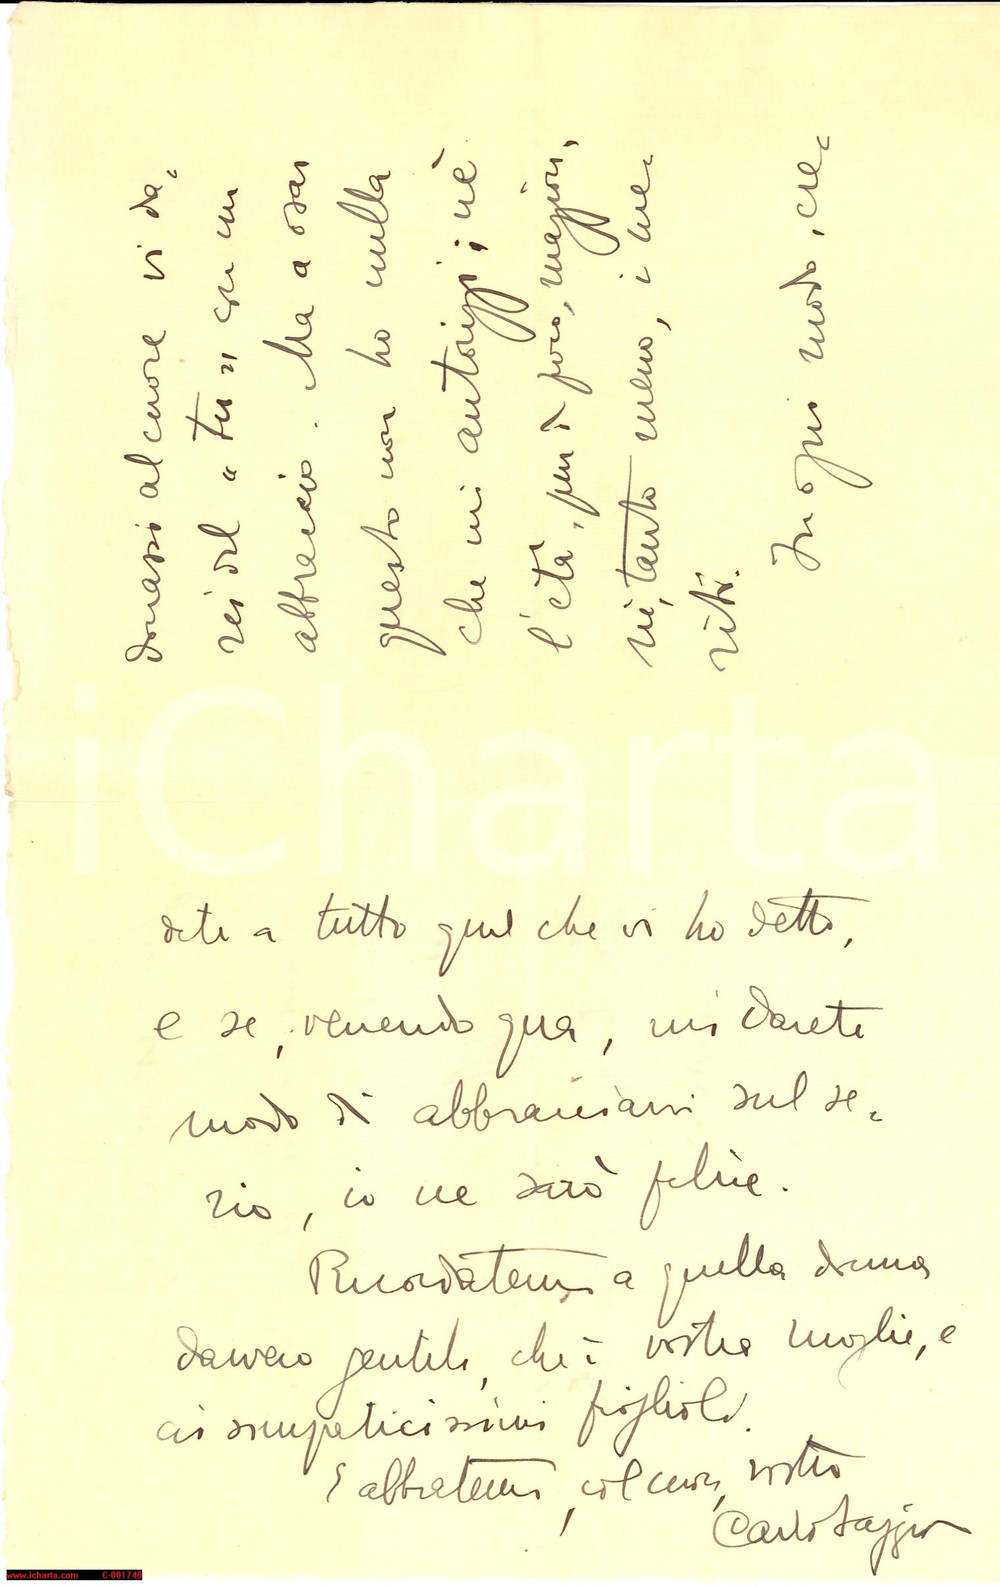 donassi al cuore vi da-
rei del « tu » con un
abbraccio. Ma a osar
questo non ho nulla
che mi autorizzi; nè
l'età, pur di poco, maggior,
nè, tanto meno, i me-
riti.
In ogni modo, cre-
dete a tutto quel che vi ho detto,
e se, venendo qua, mi darete
modo di abbracciarvi sul se-
rio, io ne sarò felice.
Ricordatemi a quella donna
davvero gentile, che è vostra moglie, e
ai simpaticissimi figlioli.
E abbiatemi, col cuore, vostro
Carlo
iCharta
www.icharta.com C-001740